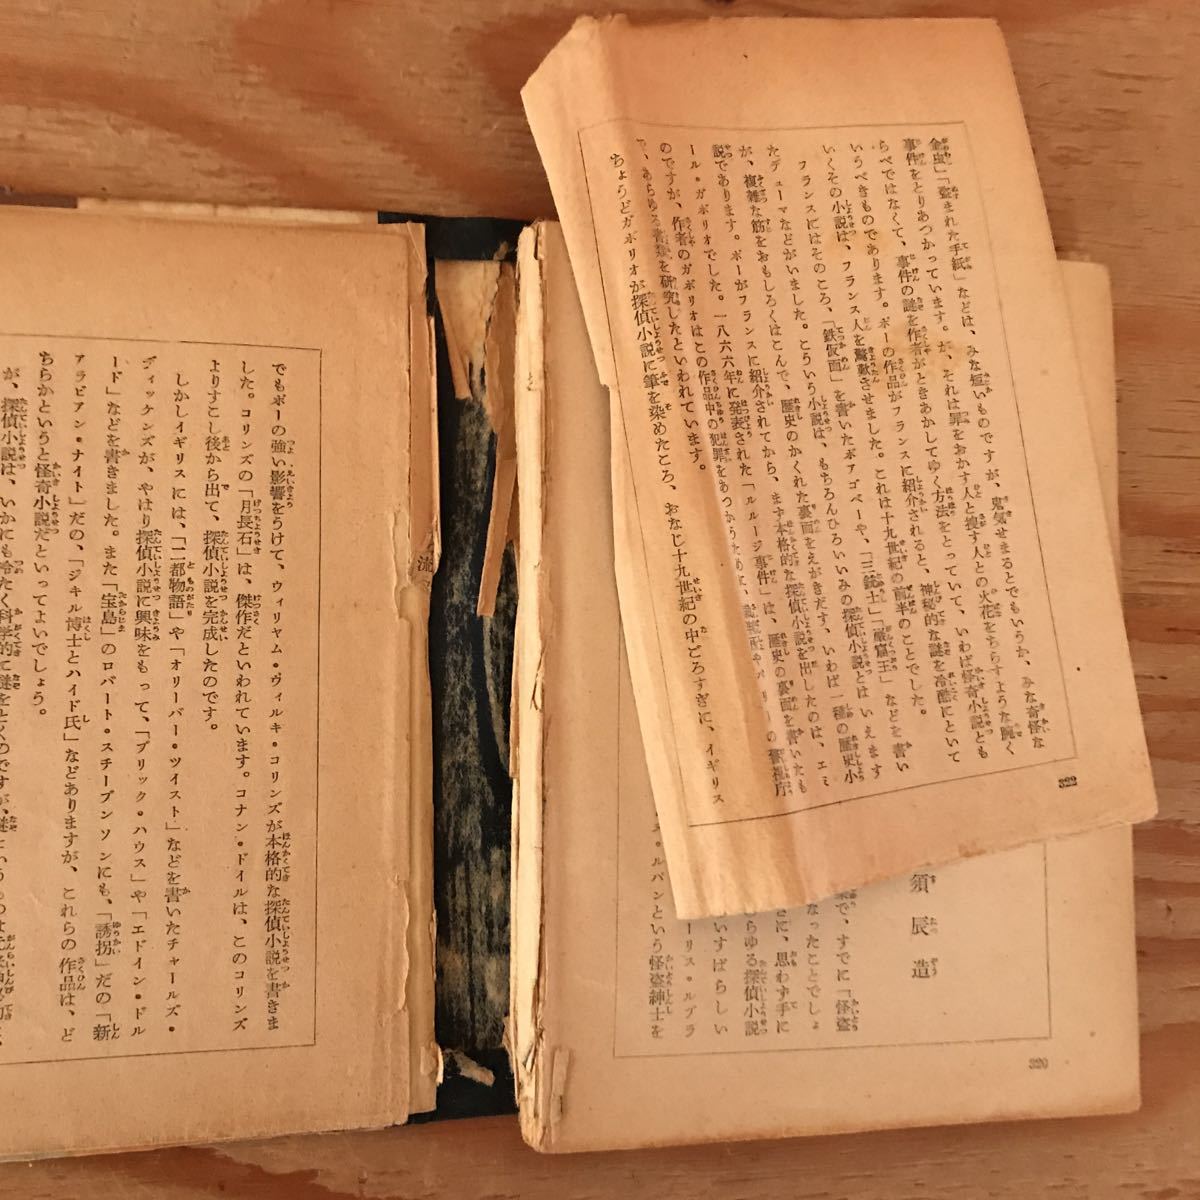 金虫」「盗まれた手紙」などは、みな短いものですが、鬼気せまるとでもいうか、みな奇怪な
事件をとりあつかっています。が、それは罪をおかす人と捜す人との火花をちらすような腕く
らべではなくて、事件の謎を作者がときあかしてゆく方法をとっていて、いわば怪奇小説とも
いうべきものであります。ポーの作品がフランスに紹介されると、神秘的な謎を冷酷にといて
いくその小説は、フランス人を驚歎させました。これは十九世紀の前半のことでした。
フランスにはそのころ、「鉄仮面」を書いたボアゴベーや、「三銃士」「巌窟王」などを書い
たデューマなどがいました。こういう小説は、もちろんひろいいみの探偵小説とはいえます
が、複雑な筋をおもしろくはこんで、歴史のかくれた裏面をえがきだす、いわば一種の歴史小
説であります。ポーがフランスに紹介されてから、まず本格的な探偵小説を出したのは、エミ
ール・ガボリオでした。一八六六年に発表された「ルルージ事件」は、歴史の裏面を書いたも
のですが、作者のガボリオはこの作品中の犯罪をあつかうために、
で、あらゆる書類を研究したといわれています。
ちょうどガボリオが探偵小説に筆を染めたころ、おなじ十九世紀の中ごろすぎに、イギリス
322
須辰造
で、すでに「怪盗
なったことでしょ
さに、思わず手に
らゆる探偵小説
いすばらしい
ーリス・ルブラ
ルパンという怪盗紳士を
320
でもポーの強い影響をうけて、ウィリヤム・ヴィルキ・コリンズが本格的な探偵小説を書きま
した。コリンズの「月長石」は、傑作だといわれています。コナン・ドイルは、このコリンズ
よりすこし後から出て、探偵小説を完成したのです。
しかしイギリスには、「二都物語」や「オリーバー・ツイスト」などを書いたチャールズ・
ディッケンズが、やはり探偵小説に興味をもって、「ブリック・ハウス」や「エドイン・ドル
ード」などを書きました。また「宝島」のロバート・スチーブンソンにも、「誘拐」だの「新
アラビアン・ナイト」だの、「ジキル博士とハイド氏」などありますが、これらの作品は、ど
ちらかというと怪奇小説だといってよいでしょう。
が、探偵小説は、いかにも冷たく科学的に謎をとくのですが、謎というものは
流